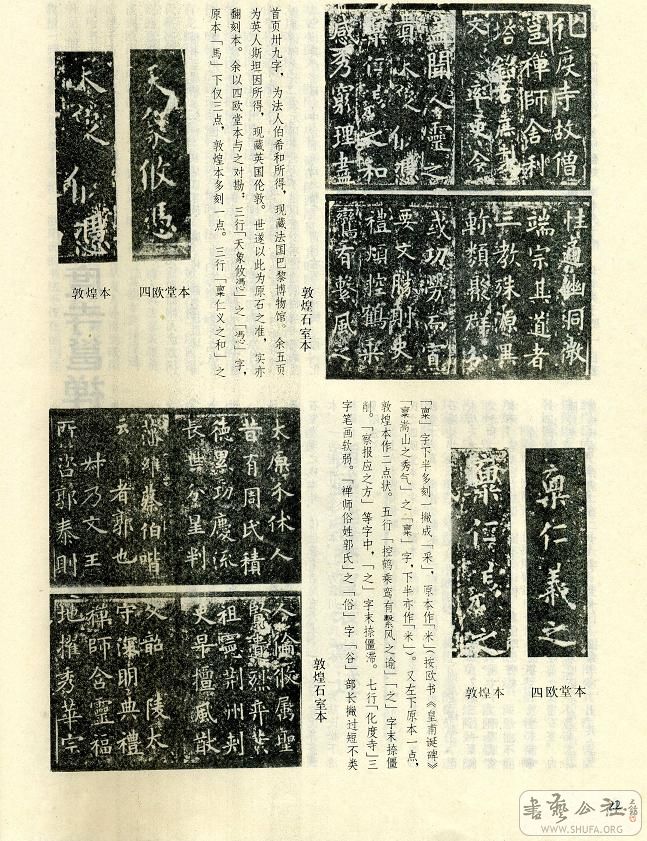 化度寺故僧
邕禪師舍利
文 率更令
盖聞人靈之
貴天象攸憑
稟仁義之和
感秀窮理盡
性通幽洞微
端宗其道者
三教殊源異
軫類聚群分
或功勞而寡
要文勝則史
禮煩控鶴乘
鸞有繫風之
敦煌石室本
首页卅九字，为法人伯希和所得，现藏法国巴黎博物馆。余五页
为英人斯坦因所得，现藏英国伦敦。世遂以此为原石之准，实亦
翻刻本。余以四欧堂本与之对勘：三行「天象攸憑」之「憑」字，
原本「馬」下仅三点，敦煌本多刻一点。三行「稟仁义之和」之
天象攸憑
四欧堂本
天象攸憑
敦煌本
稟仁義之
四欧堂本
稟仁義之
敦煌本
「稟」字下半多刻一撇成「采」，原本作「米」（按欧书《皇甫诞碑》
「稟嵩山之秀气」之「稟」字，下半亦作「米」）。又左下原本一点，
敦煌本作二点状。五行「控鹤乘鸾有繫风之谕」「之」字末捺僵
削。「察报应之方」等字中，「之」字末捺僵滞。七行「化度寺」三
字笔画软弱。「禅师俗姓郭氏」之「俗」字「谷」部长撇过短不类
太原介休人
昔有周氏積
德累功慶流
長世分星判
蔡伯喈
者郭也
叔乃文王
所咨郭泰則
人倫攸屬聖
賢遺烈奕葉
祖憲荊州刺
史早擅風猷
父韶 陵太
守深明典禮
禪師含靈福
地擢秀華宗
敦煌石室本
22
書藝公社
WWW.SHUFA.ORG